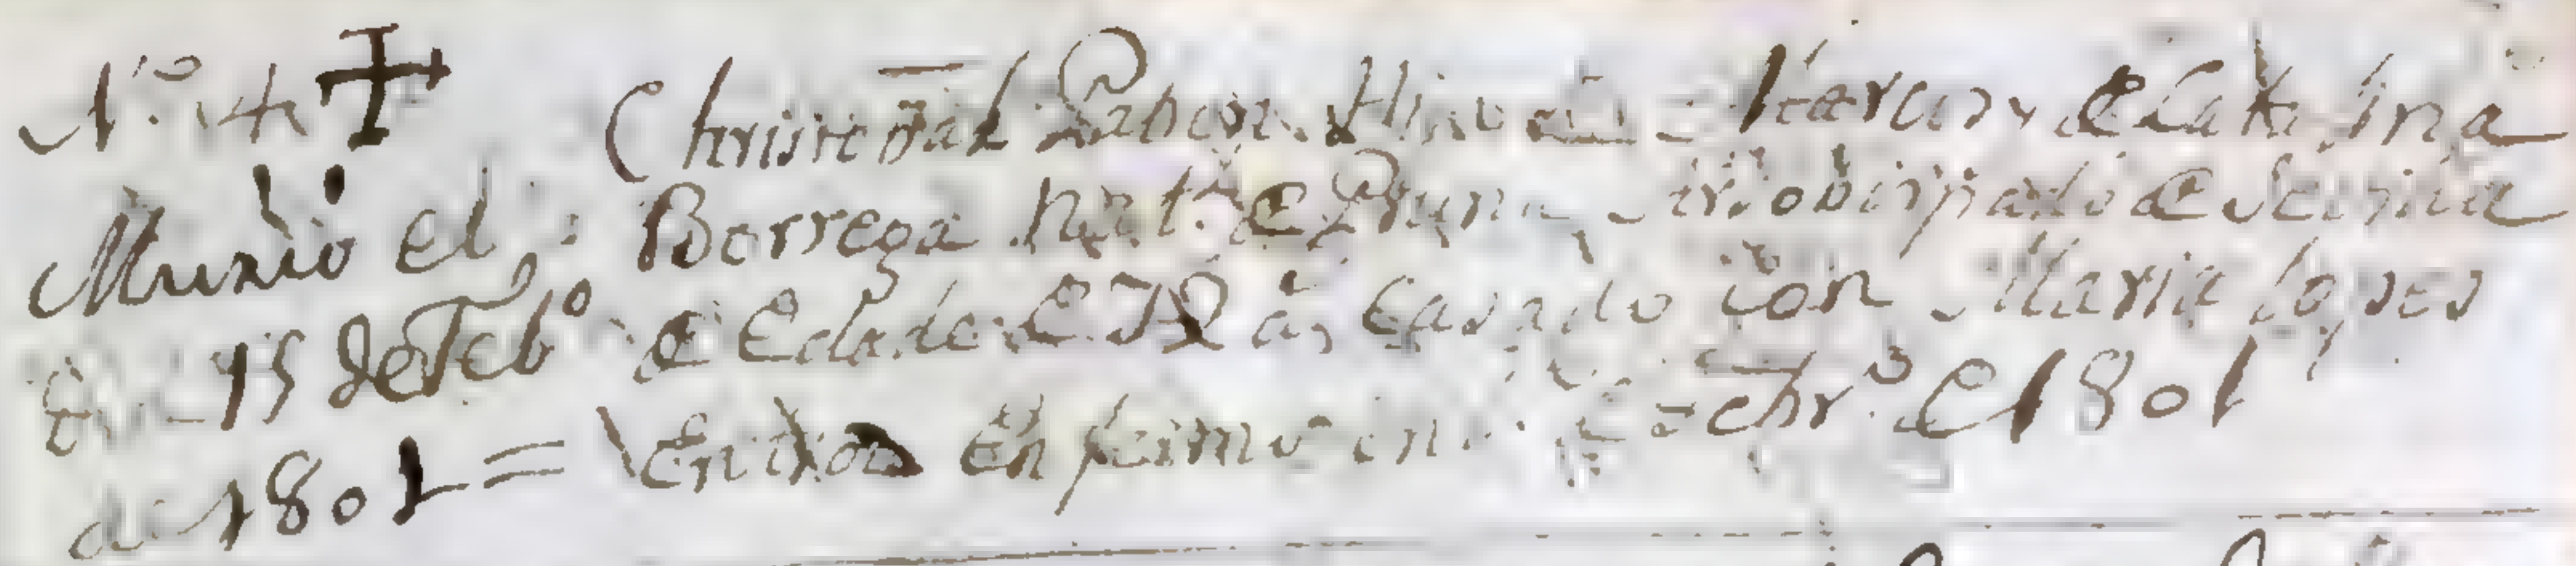 Nº 14 ✝ Christobal Pabon Hijo de Marcos y de Catalina
Murio el Borrega nat. de Pruna Arzobispado de Sevilla
15 de Febº de Edad de 32 a.s Casado con Maria Lopes
de 1801 = Entro en primero de 1801